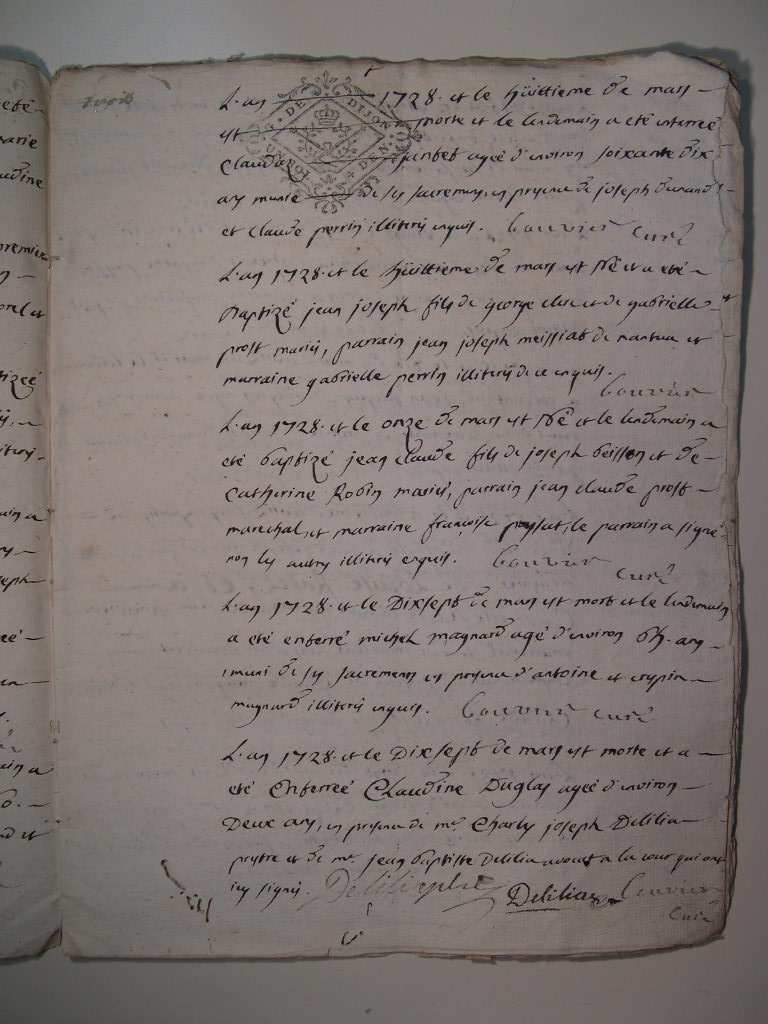 L'an 1728. et le huittieme de mars
est morte et le lendemain a eté enterreé
Claudᵉ jantet ageé d'environ soixante dix
ans munie de ses sacremens, en presence de joseph durand
et claude perrin illiteréz enquis. Bouvier curé
L'an 1728. et le huittieme de mars est né et a eté
Baptizé jean joseph fils de george cluse et de gabrielle
prost mariés, parrain jean joseph meissiat de nantua et
marraine gabrielle perrin illiteréz de ce enquis.
Bouvier
L'an 1728. et le onze de mars est né et le lendemain a
eté baptizé jean claude fils de joseph beisson et de
Catherine Robin mariés, parrain jean claude prost
marechal, et marraine françoise pysat, le parrain a signé
non les autres illiteréz enquis. Bouvier curé
L'an 1728. et le Dixsept de mars est mort et le lendemain
a eté enterré michel magnard agé d'environ ans
muni de ses sacremens en presence d'antoine et crepin
magnard illiteréz enquis. Bouvier curé
L'an 1728. et le Dixsept de mars est morte et a
eté Enterreé Claudine Duglas ageé d'environ
Deux ans, en presence de mʳ. Charles joseph Delilia
prestre et de mʳ. jean baptiste Delilia avocat a la cour qui ont
icy signés. Delilia pbre Delilia Bouvier
curé